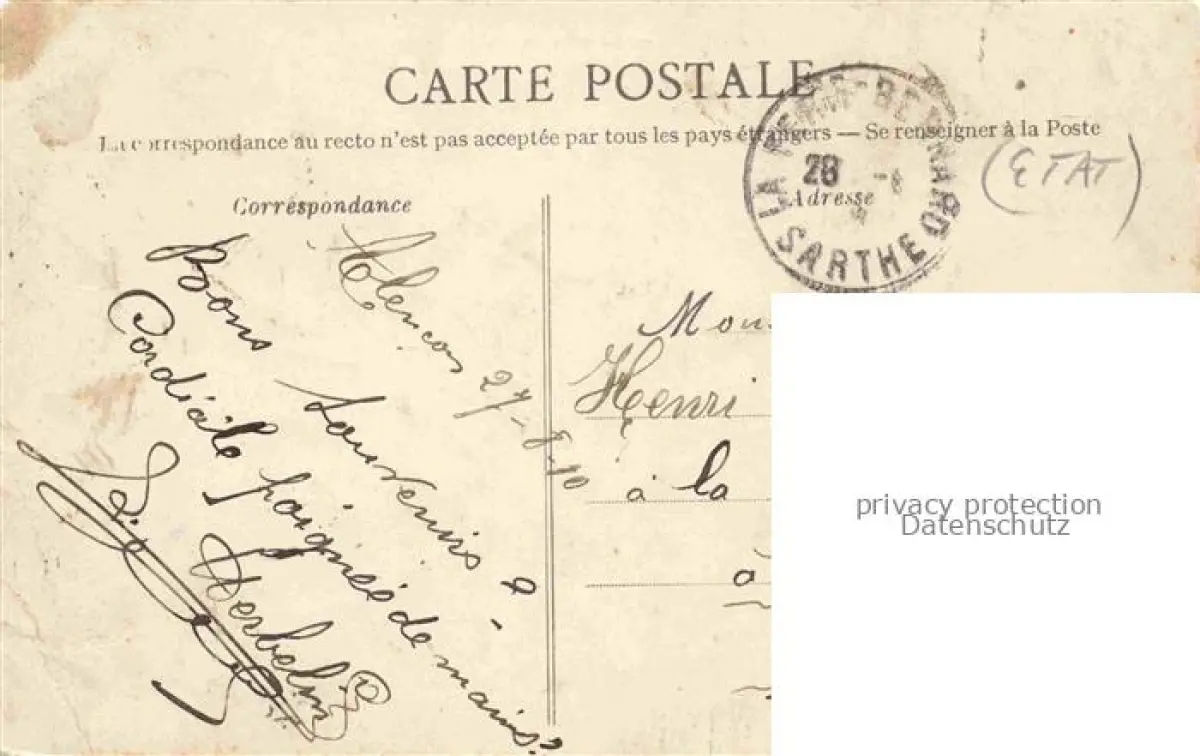 CARTE POSTALE
La correspondance au recto n'est pas acceptée par tous les pays étrangers — Se renseigner à la Poste
LA FERTÉ-BERNARD
28 -8
SARTHE
(ETAT)
Correspondance
Adresse
Alençon 27-8-10
Bons souvenirs &
Cordiale poignée de mains
Herbelin
Mon
Henri
à la
à
privacy protection
Datenschutz